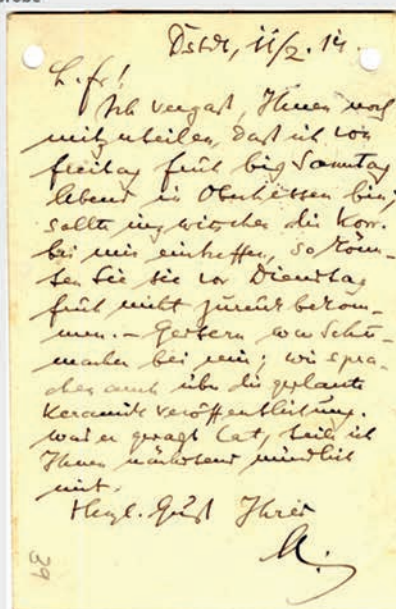 Dstdt, 11/2. 14.
L. Fr!
Ich vergaß, Ihnen noch
mitzuteilen, daß ich von
Freitag früh bis Sonntag
Abend in Oberhessen bin;
sollte inzwischen die Korr.
bei mir eintreffen, so kön-
nen Sie sie vor Dienstag
früh nicht zurück bekom-
men. – Gestern war Schu-
macher bei mir; wir spra-
chen auch über die geplante
Keramik Veröffentlichung.
was er gesagt hat, teile ich
Ihnen nächstens mündlich
mit.
Herzl. Gruß Ihres
A.
39